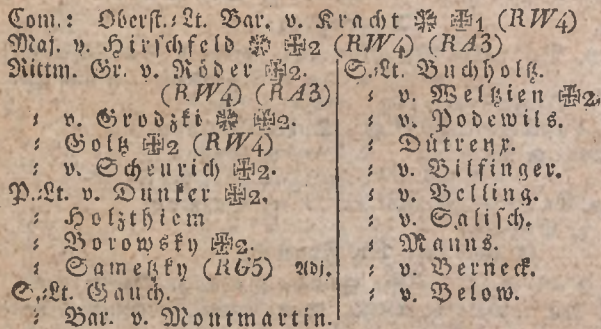 Com.: Oberst.:Lt. Bar. v. Kracht ※ ✠1 (RW4)
Maj. v. Hirschfeld ※ ✠2 (RW4) (RA3)
Rittm. Gr. v. Röder ✠2.
(RW4) (RA3)
: v. Grodzki ※ ✠2.
: Goltz ✠2 (RW4)
: v. Scheurich ✠2.
P.:Lt. v. Dunker ✠2.
: Holzthiem
: Borowsky ✠2.
: Sametzky (RG5) Adj.
S.:Lt. Gauch.
: Bar. v. Montmartin.
S.:Lt. Buchholtz.
: v. Weltzien ✠2.
: v. Podewils.
: Dütrenx.
: v. Bilfinger.
: v. Belling.
: v. Salisch.
: Manns.
: v. Berneck.
: v. Below.